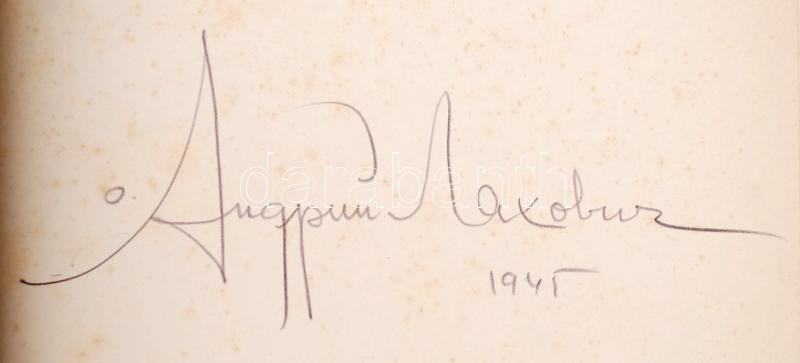 о. Андрий Лахович
1945
darabanth